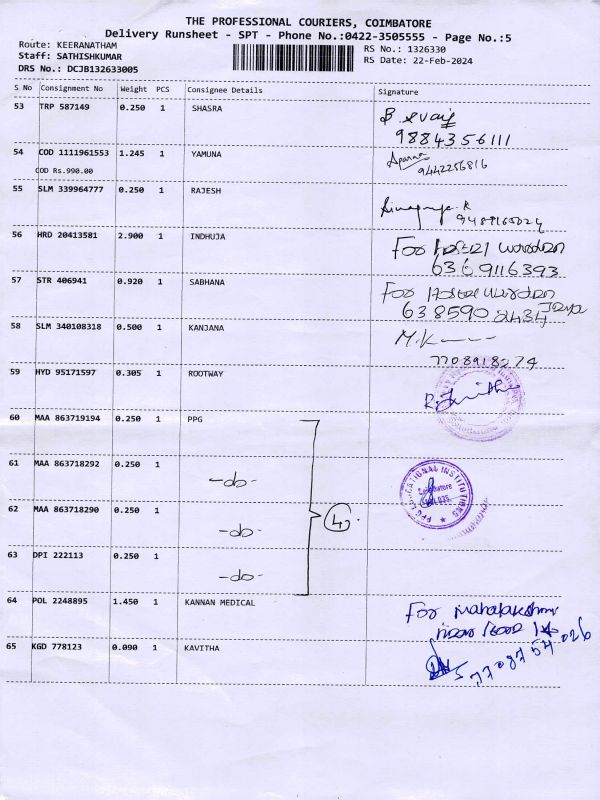 THE PROFESSIONAL COURIERS, COIMBATORE
Delivery Runsheet - SPT - Phone No.:0422-3505555 - Page No.:5
Route: KEERANATHAM
RS No.: 1326330
Staff: SATHISHKUMAR
RS Date: 22-Feb-2024
DRS No.: DCJB132633005
S No Consignment No Weight PCS Consignee Details Signature
53 TRP 587149 0.250 1 SHASRA
9884356111
54 COD 1111961553 1.245 1 YAMUNA
COD Rs.990.00
9442256816
55 SLM 339964777 0.250 1 RAJESH
56 HRD 20413581 2.900 1 INDHUJA For Hostel Warden
6369116393
57 STR 406941 0.920 1 SABHANA For Hostel Warden
638590 2434
58 SLM 340108318 0.500 1 KANJANA
7708918274
59 HYD 95171597 0.305 1 ROOTWAY
60 MAA 863719194 0.250 1 PPG
61 MAA 863718292 0.250 1
-do-
PPG EDUCATIONAL INSTITUTIONS
Coimbatore
62 MAA 863718290 0.250 1
-do-
4
63 DPI 222113 0.250 1
-do-
64 POL 2248895 1.450 1 KANNAN MEDICAL For Mahalakshmi
65 KGD 778123 0.090 1 KAVITHA
7708754026